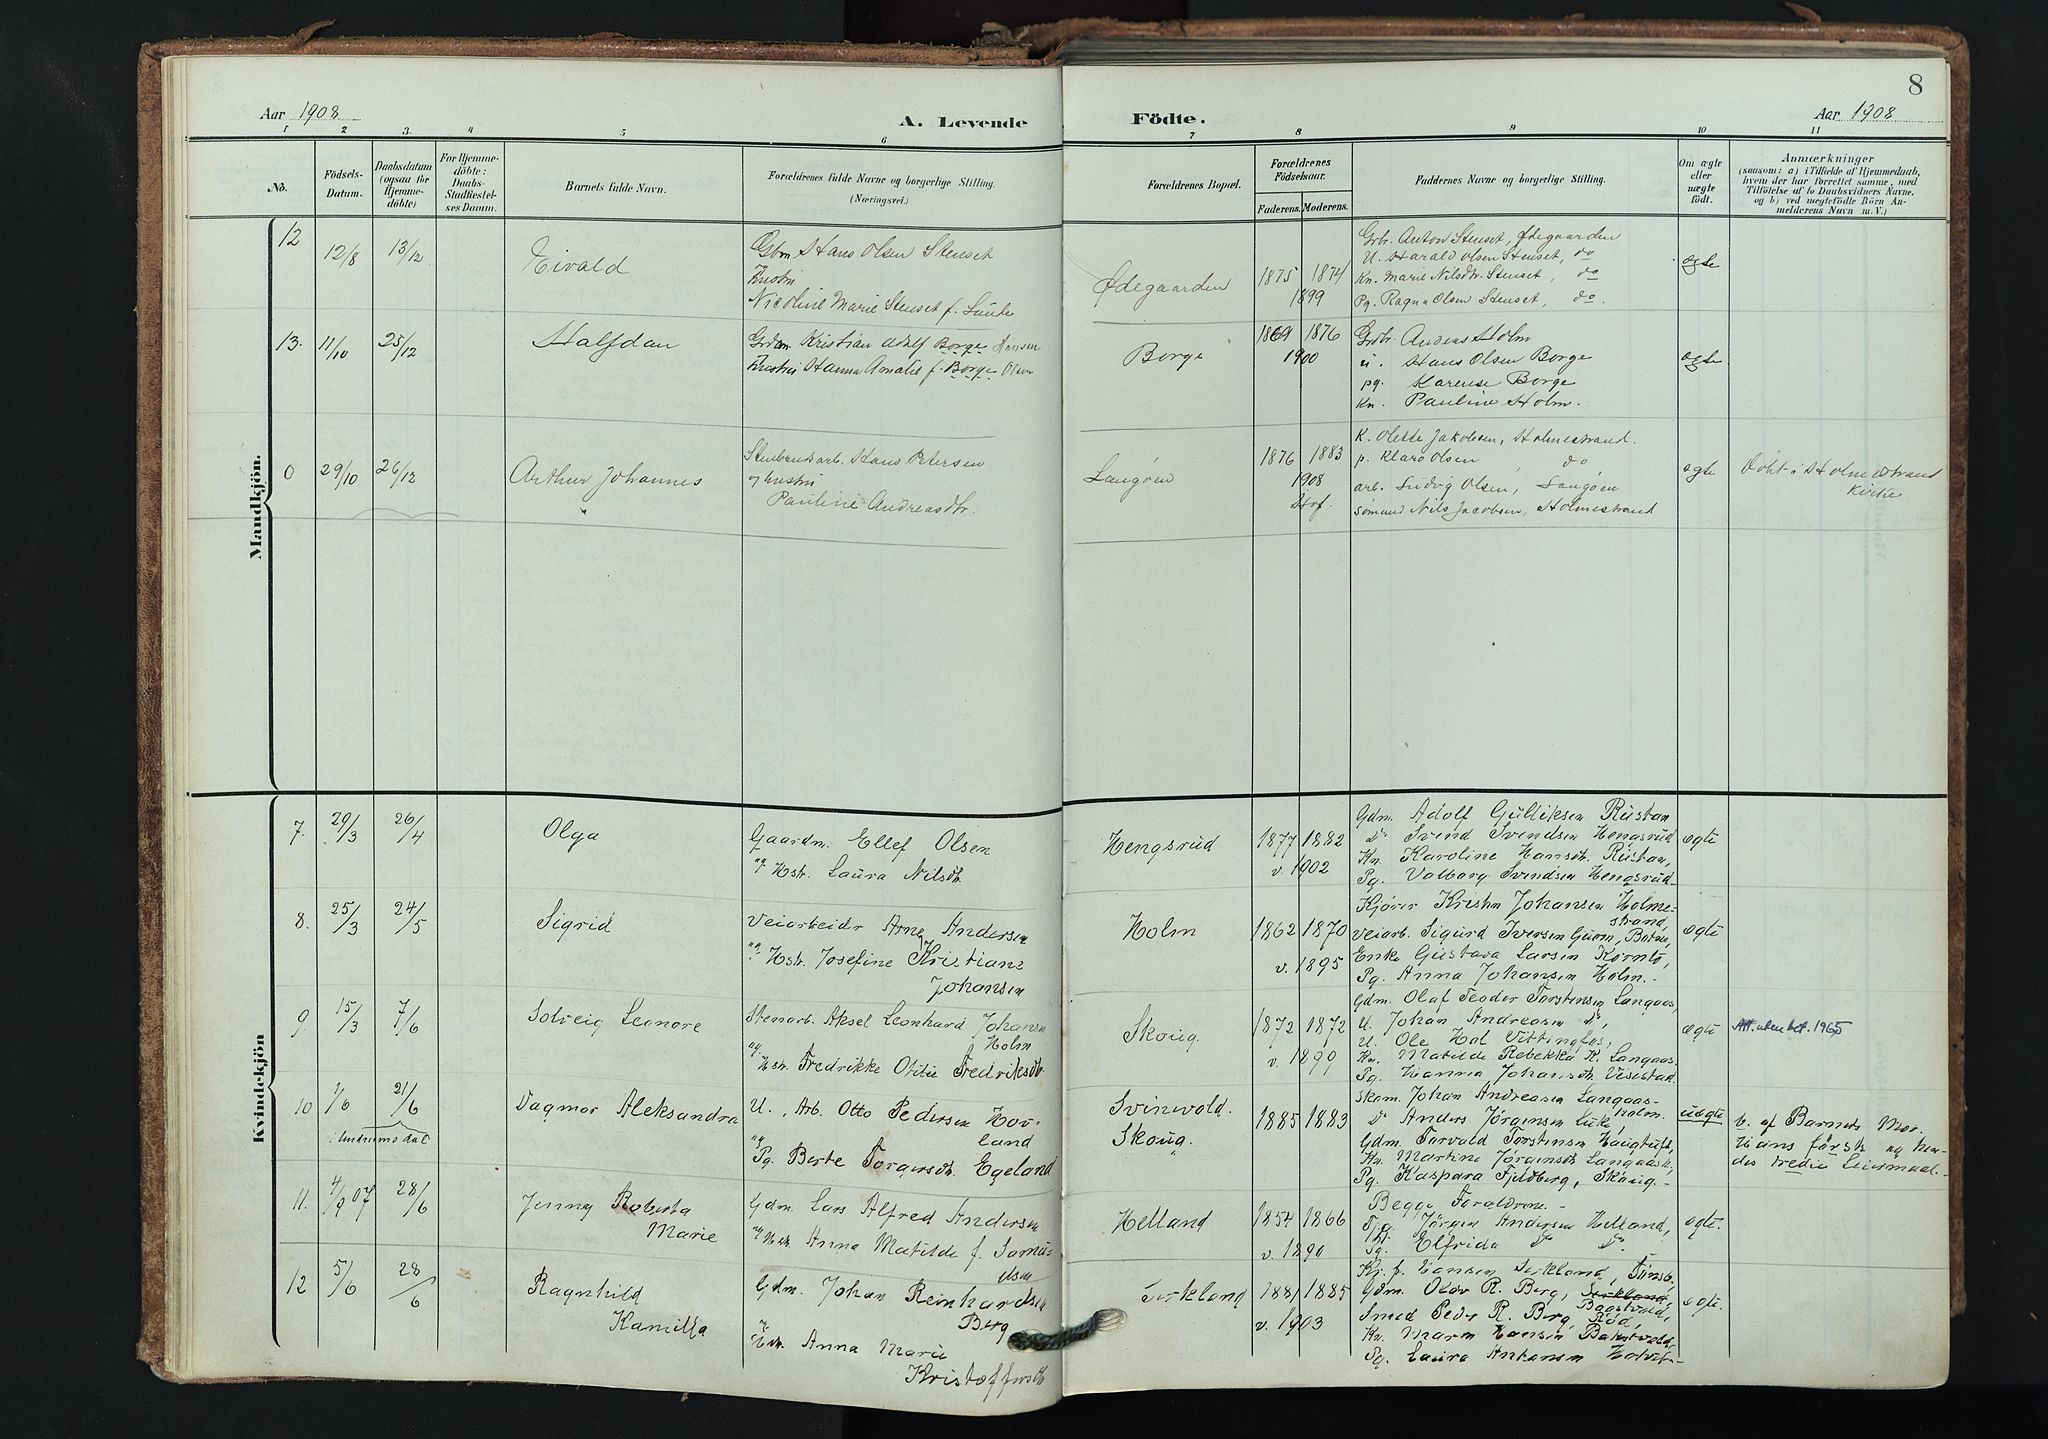 8
Aar 1908
A. Levende
Födte.
Aar 1908
1 2 3. 4 5 6 7 8 9 10 11
No.
Födsels-
Datum.
Daabsdatum
(ogsaa for
Hjemme-
döbte)
For Hjemme-
döbte:
Daabs-
Stadfæstel-
ses Datum.
Barnets fulde Navn.
Forældrenes fulde Navne og borgerlige Stilling.
(Næringsvei.)
Forældrenes Bopæl.
Forældrenes
Födselsaar.
Faderens. Moderens.
Faddernes Navne og borgerlige Stilling.
Om ægte
eller
uægte
födt.
Anmærkninger
(saasom: a) i Tilfælde af Hjemmedaab,
hvem der har forrettet samme, med
Tilföielse af to Daabsvidners Navne.
og b) ved uægtefödte Börn An-
melderens Navn m. V.)
Mandkjön.
12
12/8
13/12
Eivald
Gbm Hans Olsen Stenset
Hustru
Nicoline Marie Stenset f. Lunde
Ødegaarden
1875 1874
1899
Grbr. Anton Stenset, Ødegaarden
U. Harald Olsen Stenset, do
Kn. Marie Nilsdtr. Stenset, do
Pg. Ragna Olsen Stenset, do.
ægte
13.
11/10
25/12
Halfdan
Gdm Kristian Adolf Borge Hansen
Hustru Hanna Amalie f. Borge Olsen
Borge
1869 1876
1900
Grbr. Anders Holm
u. Hans Olsen Borge
pg. Karense Borge
Kn. Pauline Holm.
ægte
0
29/10
26/12
Arthur Johannes
Stenbrudsarb. Hans Petersen
og hustru
Pauline Andreasdtr.
Langøen
1876 1883
1908
Hof.
K. Olette Jakobsen, Holmestrand.
p. Klara Olsen do
arb. Ludvig Olsen, Langøen
sømand Nils Jacobsen, Holmestrand
ægte
Døbt i Holmestrand
Kirke
Kvindekjön
7.
29/3
26/4
Olga
Gaardm. Ellef Olsen
og Hstr. Laura Nilsdtr.
Hengsrud
1877 1882
v. 1902
Gdm. Adolf Gulliksen Rustan
Do Svend Svendsen Hengsrud
Kn. Karoline Hansdtr. Rustan,
Pg. Valborg Svendsen Hengsrud.
ægte
8.
25/3
24/5
Sigrid
Veiarbeidr Arne Andersen
og Hstr. Josefine Kristiane
Johansen
Holm
1862 1870
v. 1895
Kjører Kristen Johansen Holme-
strand,
Veiarb. Sigurd Iversen Guam, Botne,
Enke Gustava Larsen Kornto,
Pg. Anna Johansen Holm.
ægte
9.
15/3
7/6
Solveig Leonore
Stenarb. Aksel Leonhard Johansen
Holm
og
Hstr. Fredrikke Otilie Fredriksdtr.
Skoug.
1872 1872
v. 1890
Gdm. Olaf Teodor Torstensen Langaas,
U. Johan Andreasen do,
U. Ole Hol Vittingfos,
Kn. Matilde Rebekka K. Langaas,
Pg. Hanna Johansdtr.
ægte
Att. uten bet. 1965
10
1/6
21/6
Dagmar Aleksandra
U., Arb. Otto Pedersen Hov-
land
og
Pg. Berte Torgersdtr. Egeland
Svinevold.
Skoug.
1885 1883
Skom. Johan Andreasen Langaas-
holm.
Do Anders Jørgensen Luke,
Gdm. Torvald Torstensen Haugtuft,
Kn. Martine Jørgensdtr Langaash.
Pg. Kaspara Fjeldberg, Skoug.
uægte
b. af Barnets Mor.
Hans første og hen-
des tredie Leiermaal.
11.
4/9 07
28/6
Jenny Roberta
Marie
Gdm. Lars Alfred Andersen
og Hstr. Anna Matilde f. Samu-
elsen
Helland
1854 1866
v. 1890
Begge Forældrene.
Tjg. Jørgen Andersen Helland,
Pg. Elfrida do do.
ægte.
12
5/6
28/6
Ragnhild
Kamilla
Gdm. Johan Reinhardsen
Berg
og
Hstr. Anna Marie
Kristoffersdtr
Serkland
1881 1885
v. 1903
Kj. f. Hansen Serkland, Tønsb.
Gdm. Olav R. Berg, Serkland,
Smed Peder R. Berg, Rød,
Kn. Maren Hansen
Pg. Laura Antonsen
ægte.